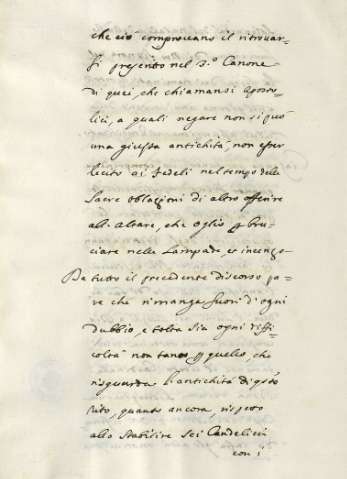 che ciò comprovano il ritrovar-
si prescritto nel 3.º Canone
di quei, che chiamansi Apos-
tolici, a quali negare non si può
una giusta antichità, non esser
lecito ai fedeli nel tempo delle
Sacre oblazioni di altro offerire
all'Altare, che oglio p bru-
ciare nelle Lampade, et incenso
Da tutto il precedente discorso pa-
re che rimanga fuori di ogni
dubbio, e tolta sia ogni diffi-
coltà non tanto p quello, che
risguarda l'antichità di qsto
rito, quanto ancora, rispetto
allo stabilire sei Candelieri
con i